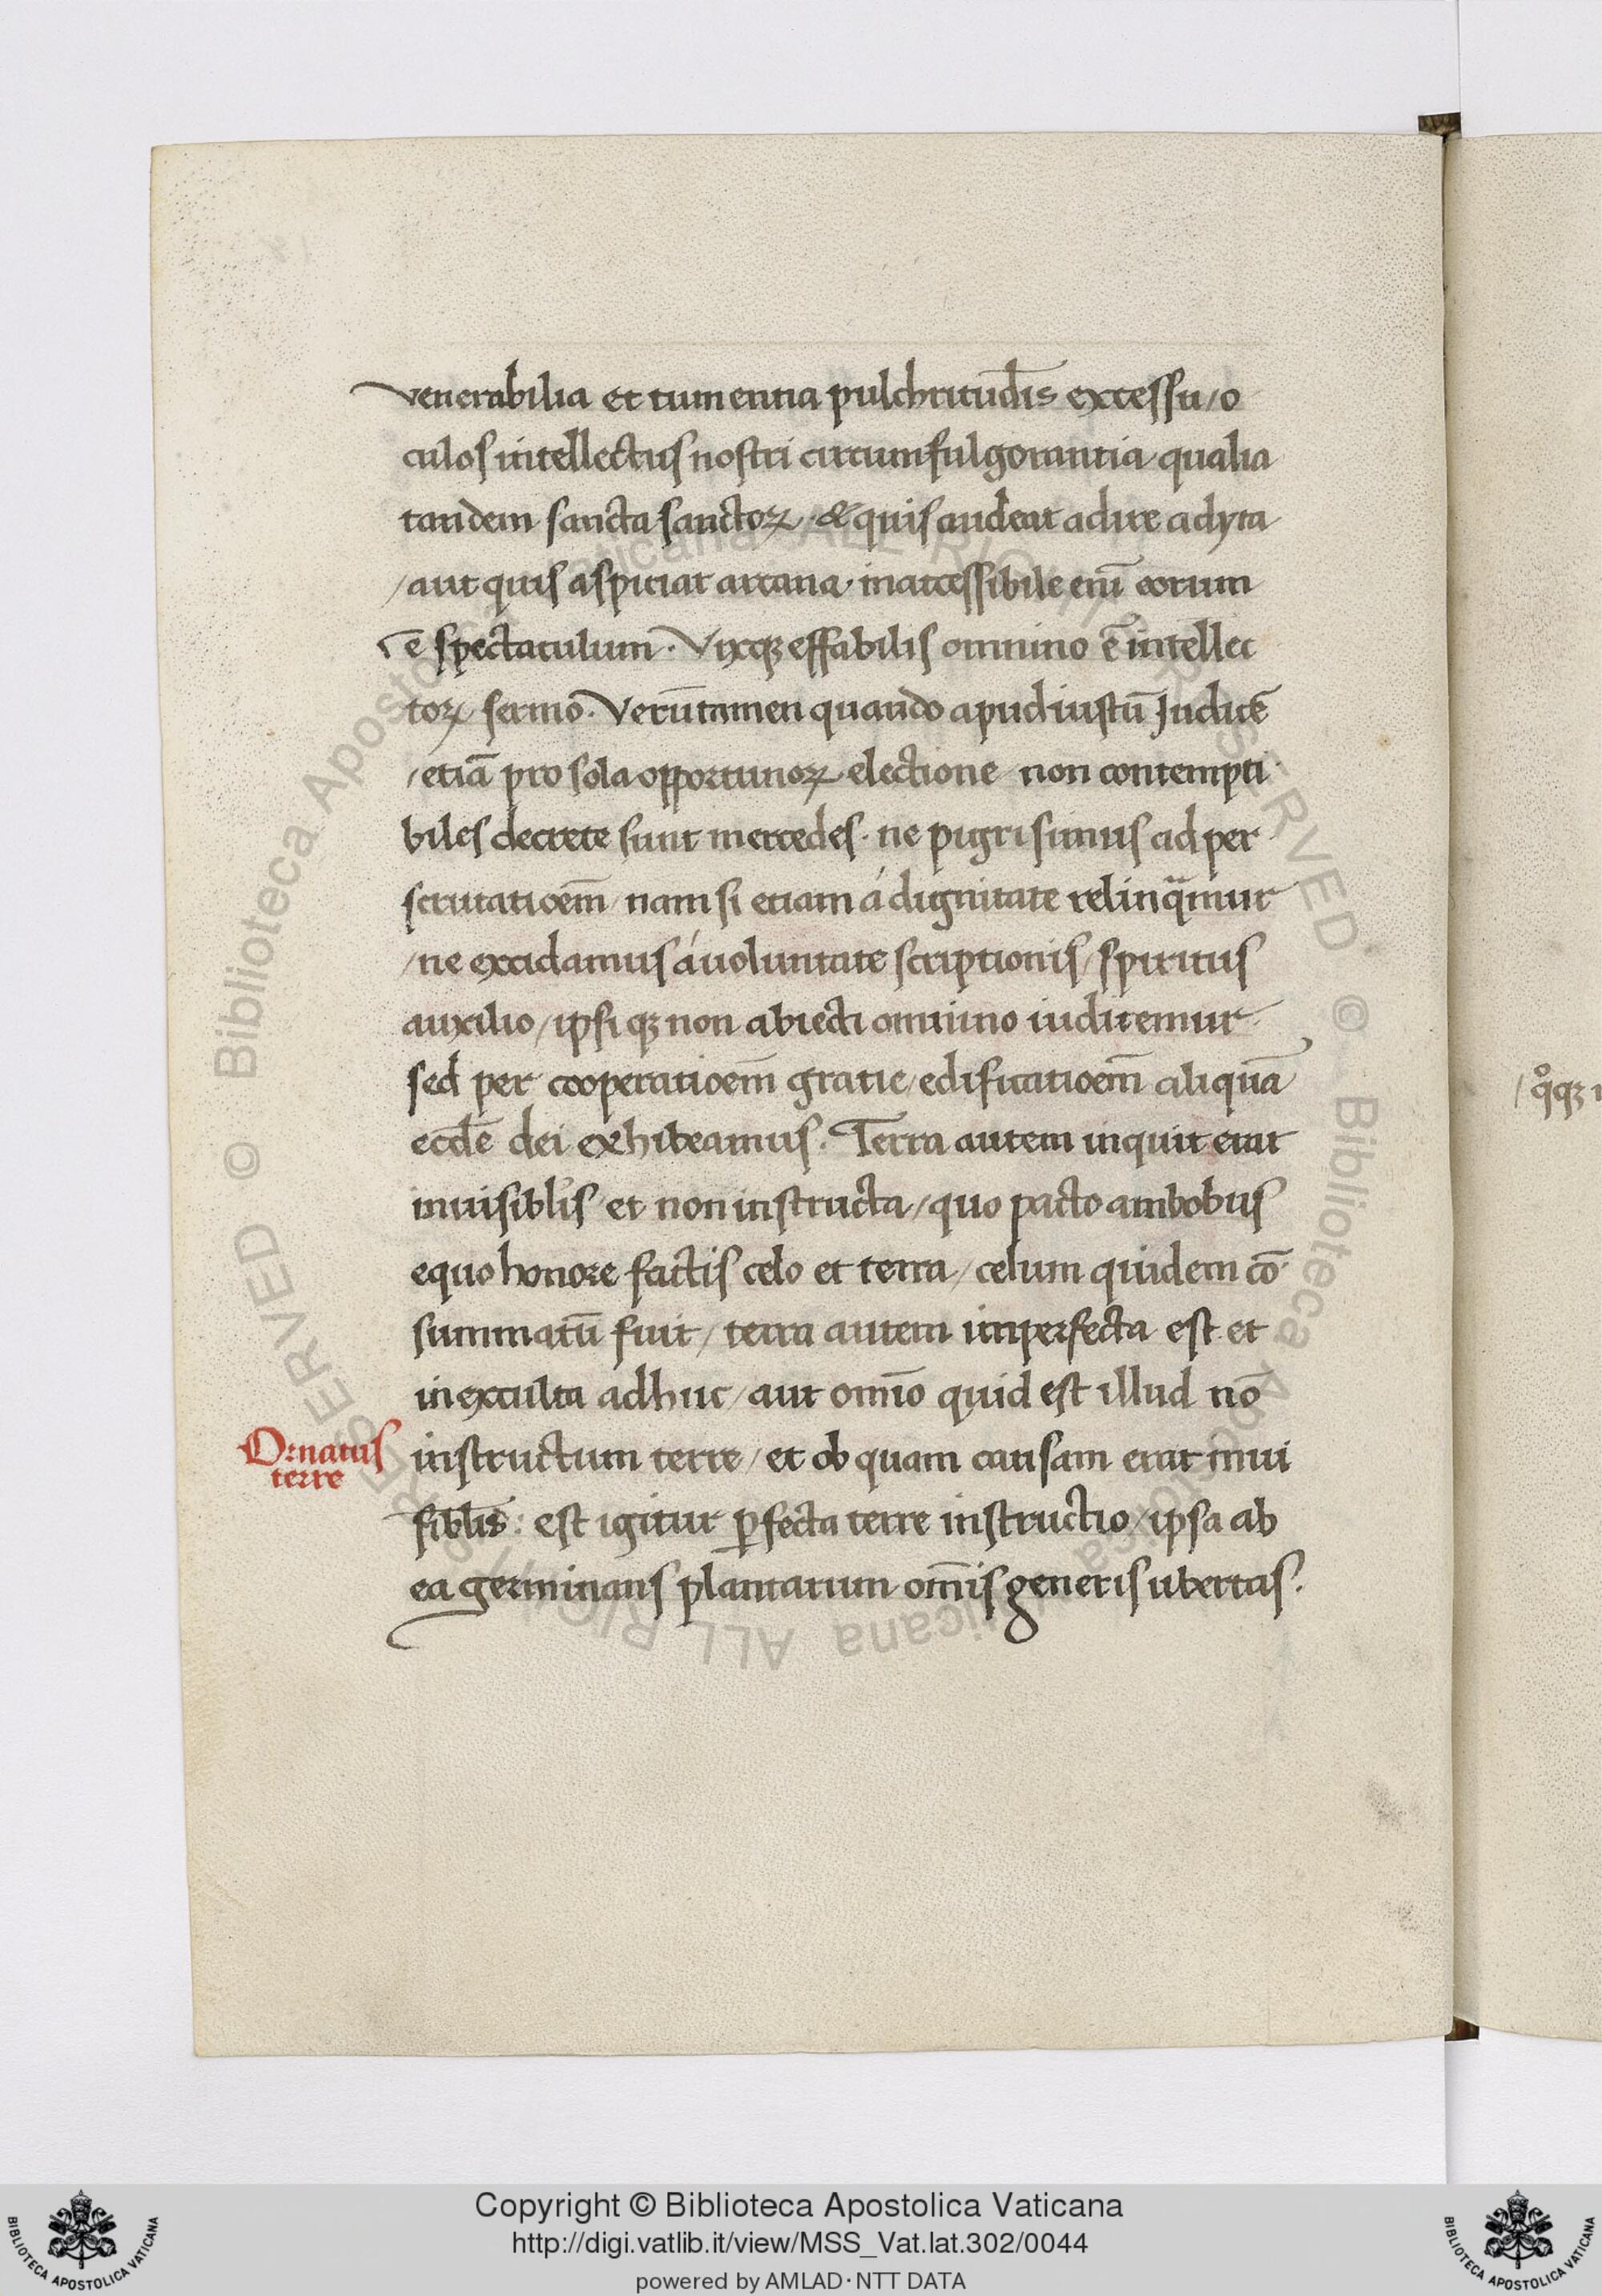 venerabilia et tumentia pulchritudīs excessu/o
culos intellectus nostri circumfulgorantia qualia
tandem sancta sanctoꝝ · & quis audeat adire adyta
/aut quis aspiciat arcana · inaccessibile enī eorum
ē spectaculum · Vixqꝫ effabilis omnino ē intellec
toꝝ sermo · Verūtamen quando apud iustū Judicē
/etiā pro sola opportunoꝝ electione non contempti
biles decrete sunt mercedes · ne pigri simus ad per
scrutatioem̄ nam si etiam á dignitate relinq̄mur
/ne excidamus á uoluntate scriptionis/spiritus
auxilio/ipsiqꝫ non abiecti omnino iudicemur
sed per cooperatioem̄ gratie/edificatioem̄ aliquā
eccl̄e dei exhibeamus. Terra autem inquit erat
inuisibl̓is et non instructa/quo pacto ambobus
equo honore factis celo et terra/celum quidem cō
summatū fuit/terra autem imperfecta est et
inexculta adhuc/aut omīo quid est illud nō
Ornatus
terre
instructum terre/et ob quam causam erat inui
sibl̄is: est igitur ꝑfecta terre instructio/ipsa ab
ea germinans plantarum om̄is generis ubertas.
/q̊qꝫ
Copyright © Biblioteca Apostolica Vaticana
http://digi.vatlib.it/view/MSS_Vat.lat.302/0044
powered by AMLAD·NTT DATA
BIBLIOTECA APOSTOLICA VATICANA
BIBLIOTECA APOSTOLICA VATICANA
© Biblioteca Apostolica Vaticana ALL RIGHTS RESERVED © Biblioteca Apostolica Vaticana ALL RIGHTS RESERVED